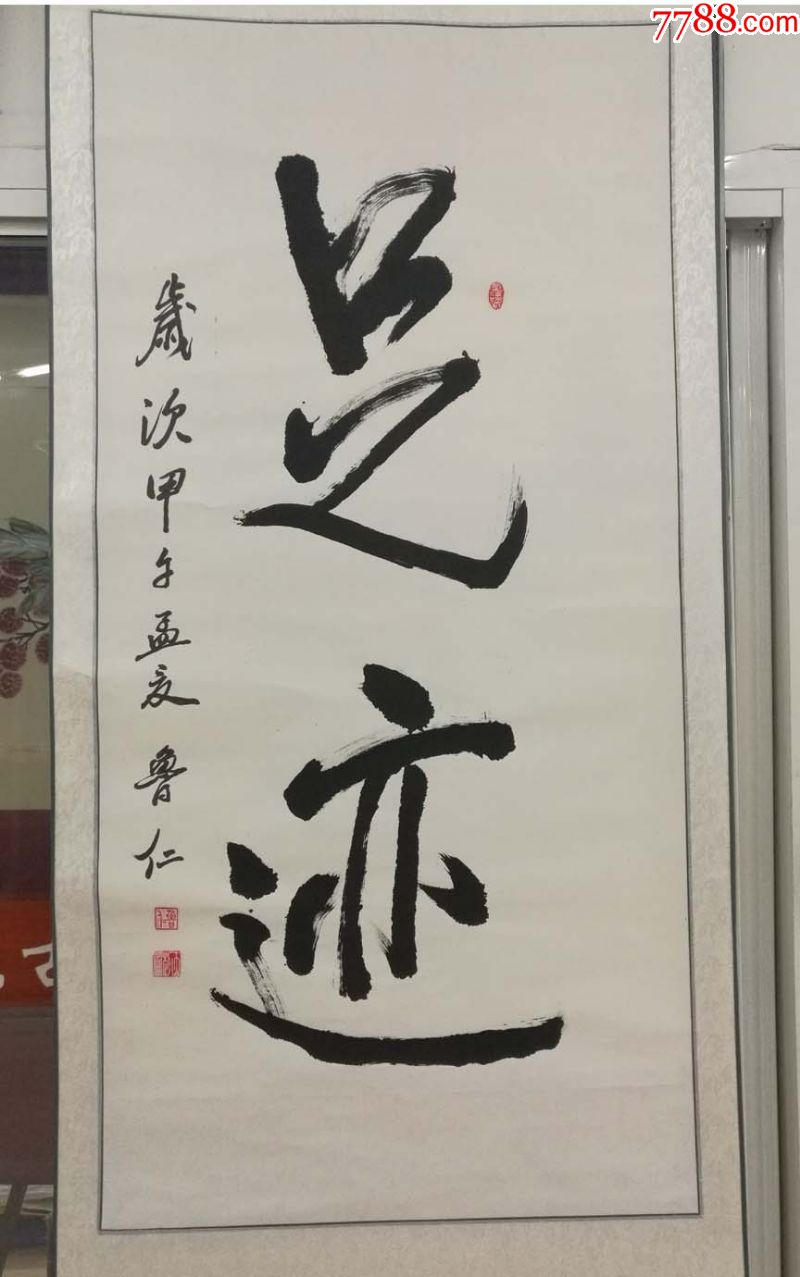 7788.com
足
迹
歲次甲午孟夏 魯仁